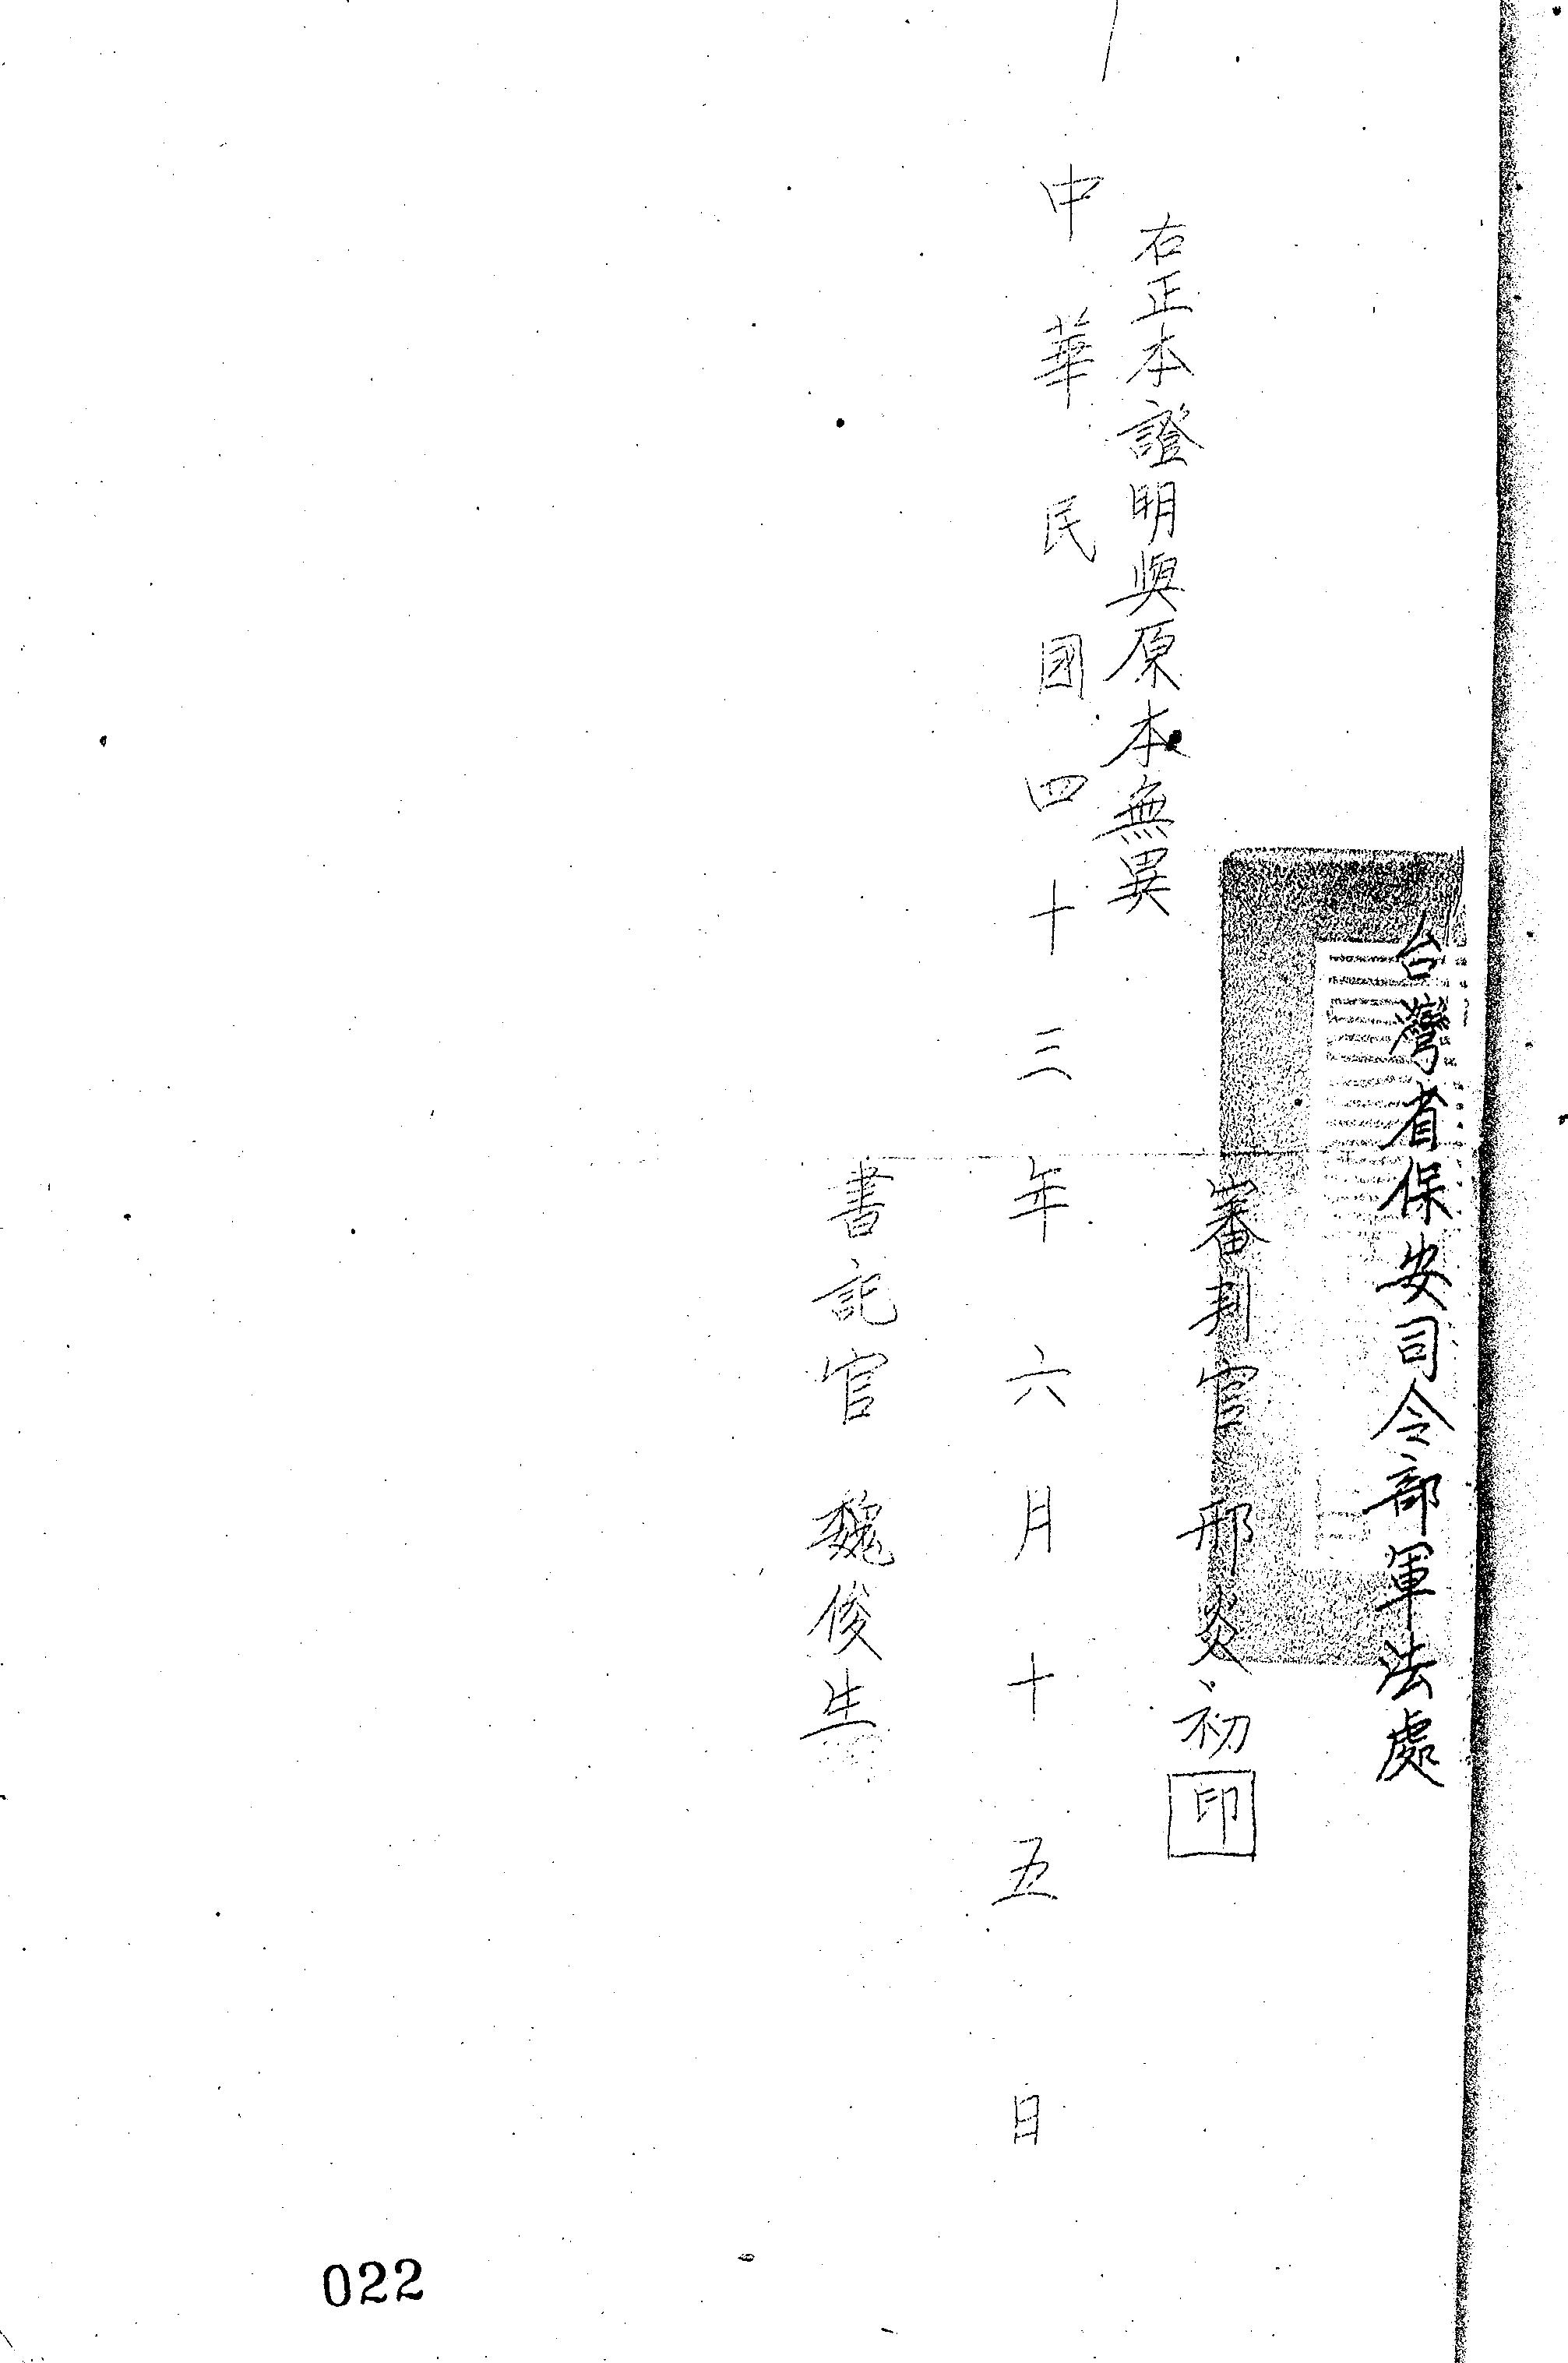 台灣省保安司令部軍法處
審判官 邢炎初 印
右正本證明與原本無異
中華民國四十三年六月十五日
書記官 魏俊生
022